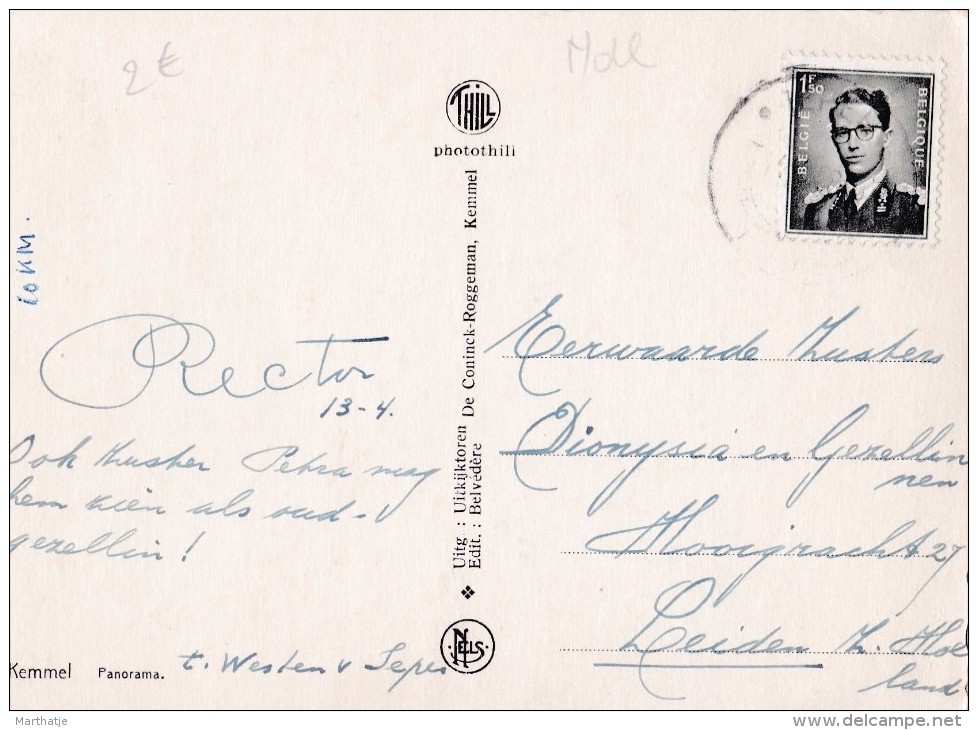 2 €
THILL
photothill
1F50
BELGIË
BELGIQUE
10 KM.
Rector
13-4.
Ook Zuster Petra mag
hem zien als oud-
gezellin!
Kemmel Panorama.
t. Westen v Ieper
Uitg : Uitkijktoren De Coninck-Roggeman, Kemmel
Edit. : Belvédère
NELS
Eerwaarde Zusters
Dionysia en Gezellin
nen
Hooigracht 27
Leiden Z. Hol
land
Marthatje
www.delcampe.net